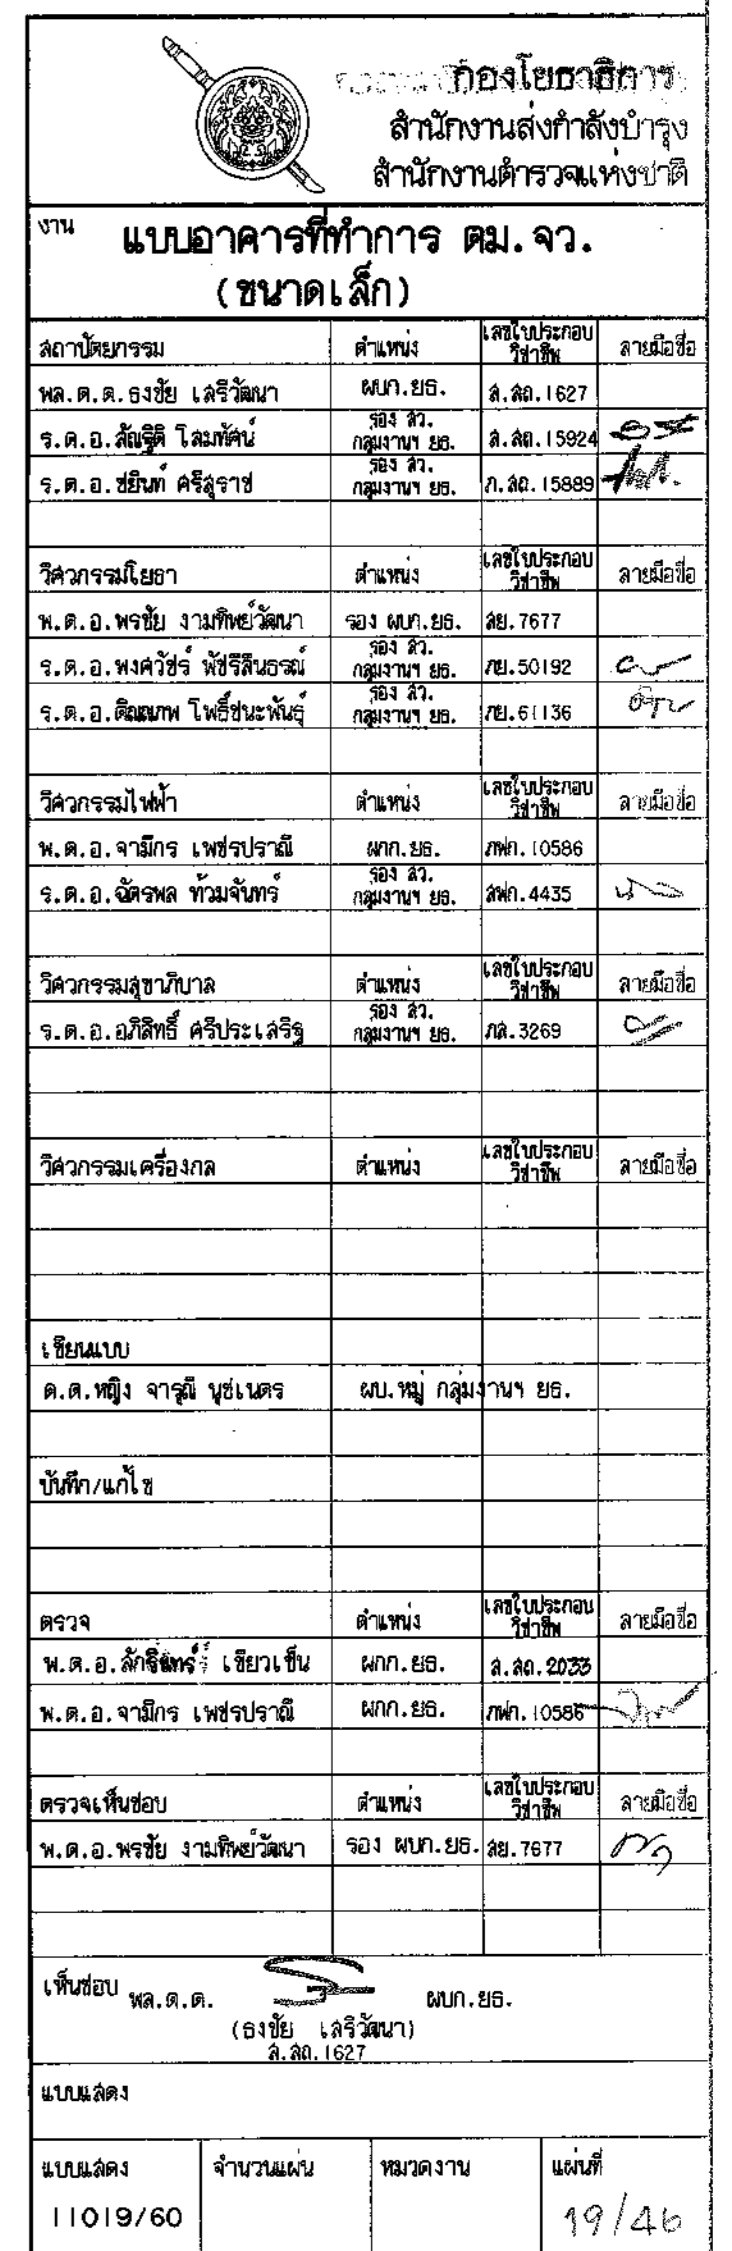 กองโยธาธิการ
สำนักงานส่งกำลังบำรุง
สำนักงานตำรวจแห่งชาติ
งาน แบบอาคารที่ทำการ ตม.จว.
(ขนาดเล็ก)
สถาปัตยกรรม ตำแหน่ง เลขใบประกอบวิชาชีพ ลายมือชื่อ
พล.ต.ต.ธงชัย เสรีวัฒนา ผบก.ยธ. ส.สถ.1627
ร.ต.อ.สัณฐิติ โสมทัศน์ รอง สว. กลุ่มงานฯ ยธ. ส.สถ.15924
ร.ต.อ.ชยินท์ ศรีสุราช รอง สว. กลุ่มงานฯ ยธ. ภ.สถ.15889
วิศวกรรมโยธา ตำแหน่ง เลขใบประกอบวิชาชีพ ลายมือชื่อ
พ.ต.อ.พรชัย งามทิพย์วัฒนา รอง ผบก.ยธ. สย.7677
ร.ต.อ.พงศวัชร์ พัชรีสินธรณ์ รอง สว. กลุ่มงานฯ ยธ. ภย.50192
ร.ต.อ. โพธิ์ชนะพันธุ์ รอง สว. กลุ่มงานฯ ยธ. ภย.61136
วิศวกรรมไฟฟ้า ตำแหน่ง เลขใบประกอบวิชาชีพ ลายมือชื่อ
พ.ต.อ.จามิกร เพชรปราณี ผกก.ยธ. ภฟก.10586
ร.ต.อ.ฉัตรพล ท้วมจันทร์ รอง สว. กลุ่มงานฯ ยธ. สฟก.4435
วิศวกรรมสุขาภิบาล ตำแหน่ง เลขใบประกอบวิชาชีพ ลายมือชื่อ
ร.ต.อ.อภิสิทธิ์ ศรีประเสริฐ รอง สว. กลุ่มงานฯ ยธ. ภส.3269
วิศวกรรมเครื่องกล ตำแหน่ง เลขใบประกอบวิชาชีพ ลายมือชื่อ
เขียนแบบ
ด.ต.หญิง จารุณี นุชเนตร ผบ.หมู่ กลุ่มงานฯ ยธ.
บันทึก/แก้ไข
ตรวจ ตำแหน่ง เลขใบประกอบวิชาชีพ ลายมือชื่อ
พ.ต.อ. เขียวเข็น ผกก.ยธ. ส.สถ.2033
พ.ต.อ.จามิกร เพชรปราณี ผกก.ยธ. ภฟก.10586
ตรวจเห็นชอบ ตำแหน่ง เลขใบประกอบวิชาชีพ ลายมือชื่อ
พ.ต.อ.พรชัย งามทิพย์วัฒนา รอง ผบก.ยธ. สย.7677
เห็นชอบ พล.ต.ต. ผบก.ยธ.
(ธงชัย เสรีวัฒนา)
ส.สถ.1627
แบบแสดง
แบบแสดง จำนวนแผ่น หมวดงาน แผ่นที่
11019/60 19/46